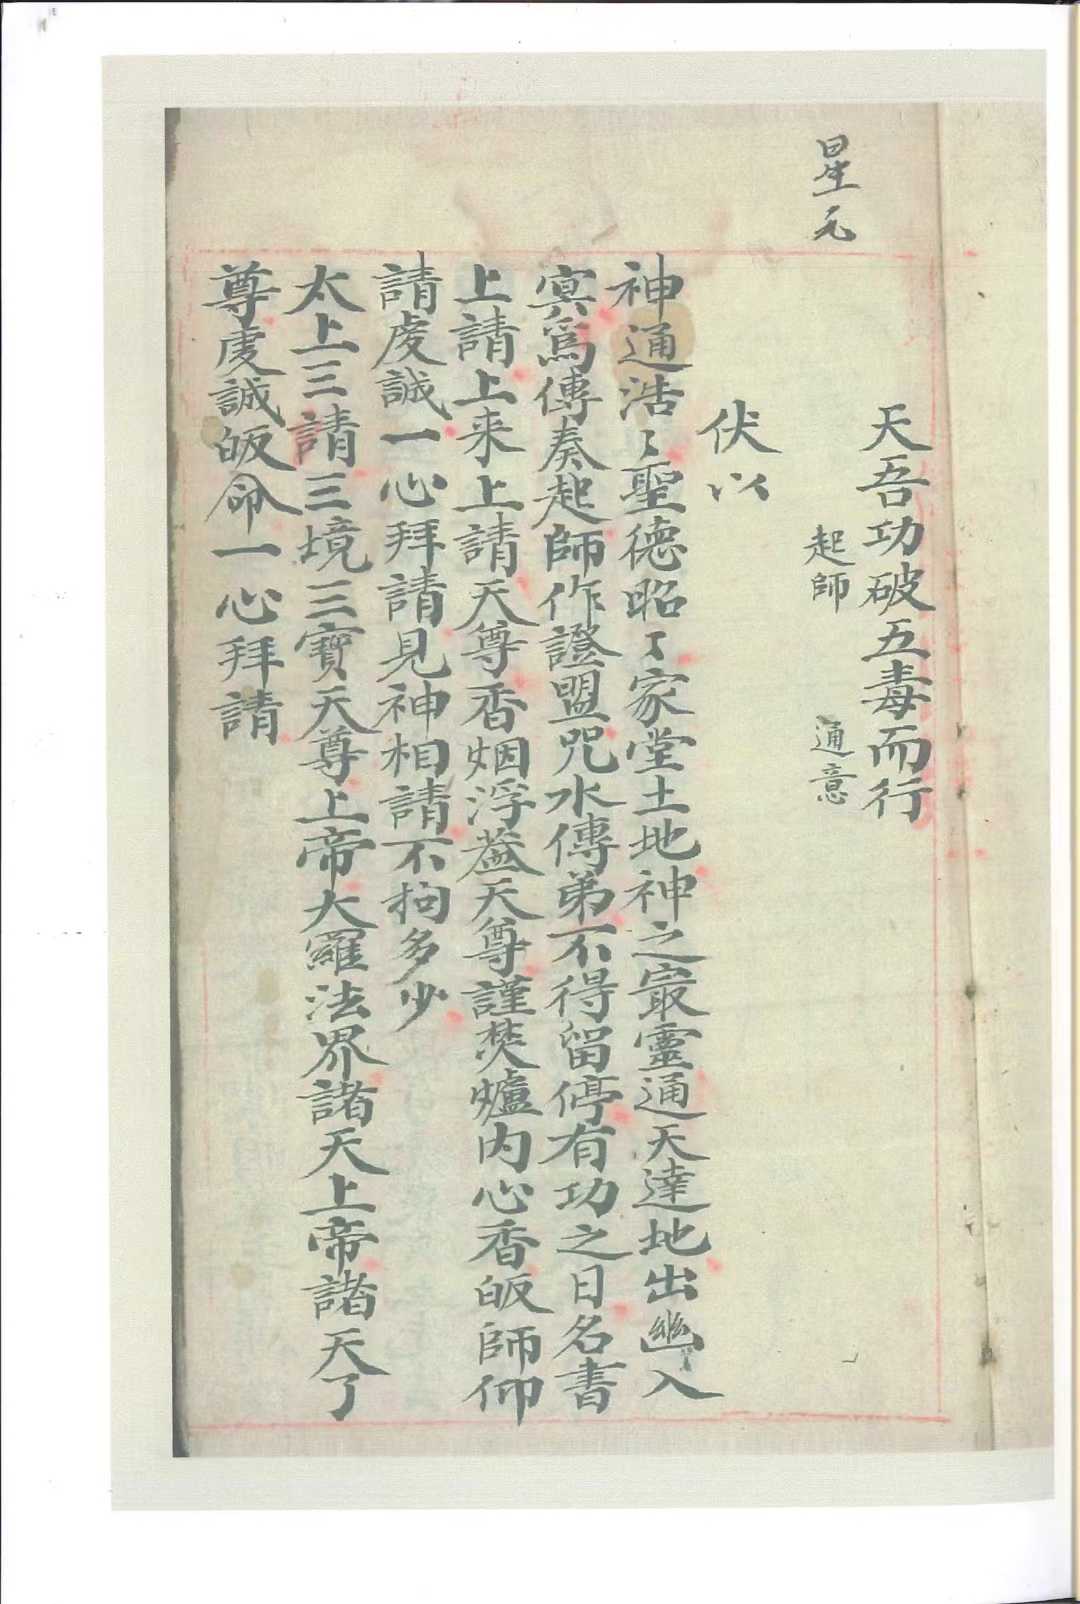 星元
天吾功破五毒而行
起師 通意
伏以
神通浩〻聖德昭〻家堂土地神之㝡靈通天達地出幽入
冥為傳奏起師作證盟咒水傳弟不得留停有功之日名書
上請上来上請天尊香烟浮盖天尊謹焚爐内心香皈師仰
請虔誠一心拜請見神相請不拘多少
太上三請三境三寶天尊上帝大羅法界諸天上帝諸天了
尊虔誠皈命一心拜請